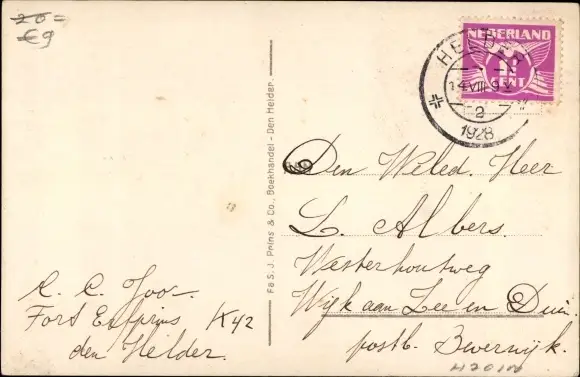 20=
€9
NEDERLAND
1½
CENT
HELDER
14 VIII 9 V
2
1928
Den Weled. Heer
L. Albers.
Westerhoutweg
Wijk aan Zee en Duin.
postk. Beverwijk.
H201N
Fa S. J. Prins & Co., Boekhandel - Den Helder.
A. C. Joor.
Fort Erfprins K42
den Helder.